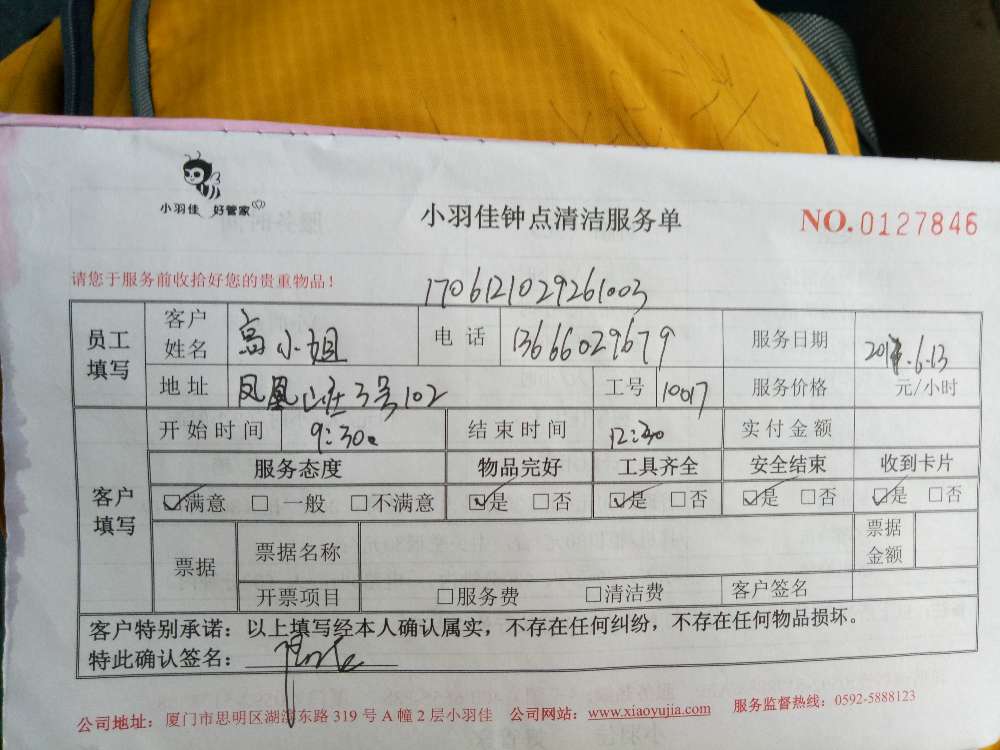 小羽佳 好管家
小羽佳钟点清洁服务单
NO.0127846
请您于服务前收拾好您的贵重物品！
1706121029261003
员工填写 客户姓名 高小姐 电话 13666029679 服务日期 6.13
地址 凤凰山庄3号102 工号 10017 服务价格 元/小时
客户填写 开始时间 9:30 结束时间 12:30 实付金额
服务态度 物品完好 工具齐全 安全结束 收到卡片
☑满意 □一般 □不满意 ☑是 □否 ☑是 □否 ☑是 □否 ☑是 □否
票据 票据名称 票据金额
开票项目 □服务费 □清洁费 客户签名
客户特别承诺：以上填写经本人确认属实，不存在任何纠纷，不存在任何物品损坏。
特此确认签名：
公司地址：厦门市思明区湖滨东路 319 号 A 幢 2 层小羽佳 公司网站：www.xiaoyujia.com 服务监督热线：0592-5888123